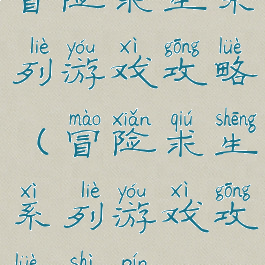 冒险求生系
liè yóu xì gōng lüè
列游戏攻略
mào xiǎn qiú shēng
（冒险求生
xì liè yóu xì gōng
系列游戏攻
lüè shì pín